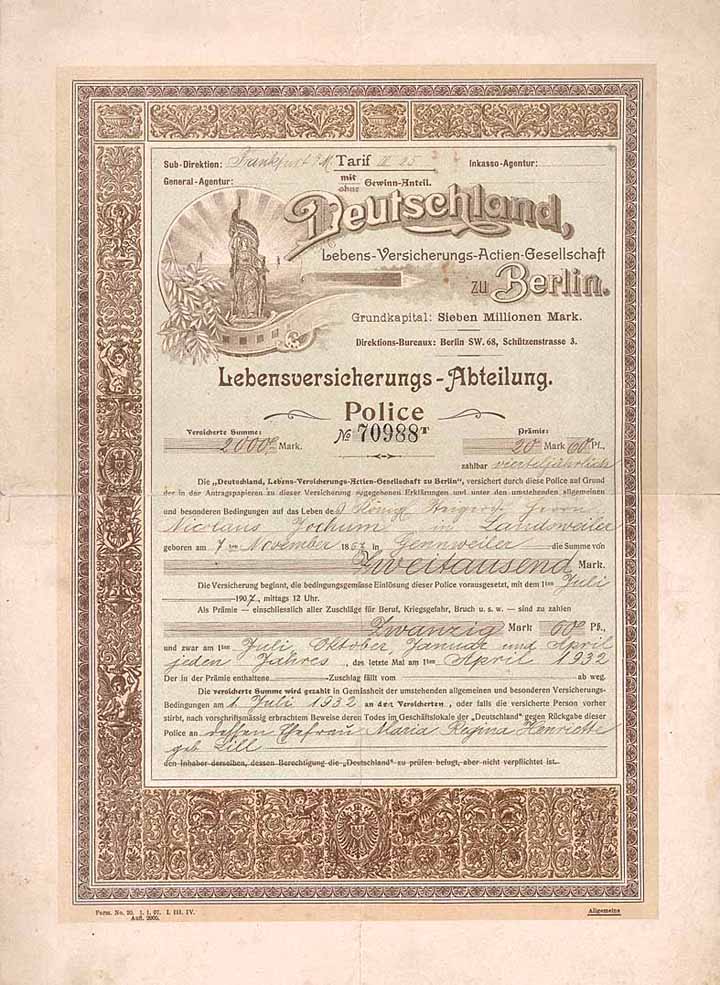 Sub-Direktion: Frankfurt a/M Tarif III 25 Inkasso-Agentur:
General-Agentur: mit ohne Gewinn-Anteil.
Deutschland,
Lebens-Versicherungs-Actien-Gesellschaft
zu Berlin.
Grundkapital: Sieben Millionen Mark.
Direktions-Bureaux: Berlin SW. 68, Schützenstrasse 3.
Lebensversicherungs-Abteilung.
Police
Versicherte Summe: № 70988T Prämie:
2000 Mark. 20 Mark 60 Pf.,
zahlbar vierteljährlich
Die „Deutschland, Lebens-Versicherungs-Actien-Gesellschaft zu Berlin“, versichert durch diese Police auf Grund
der in der Antragspapieren zu dieser Versicherung abgegebenen Erklärungen und unter den umstehenden allgemeinen
und besonderen Bedingungen auf das Leben des Herrn
Nicolaus Jochum in Landsweiler
geboren am 7ten November 1867 in Gennweiler die Summe von
Zweitausend Mark.
Die Versicherung beginnt, die bedingungsgemässe Einlösung dieser Police vorausgesetzt, mit dem 1ten Juli
1907, mittags 12 Uhr.
Als Prämie — einschliesslich aller Zuschläge für Beruf, Kriegsgefahr, Bruch u. s. w. — sind zu zahlen
Zwanzig Mark 60 Pf.,
und zwar am 1ten Juli, Oktober, Januar und April
jeden Jahres, das letzte Mal am 1ten April 1932
Der in der Prämie enthaltene Zuschlag fällt vom ab weg.
Die versicherte Summe wird gezahlt in Gemässheit der umstehenden allgemeinen und besonderen Versicherungs-
Bedingungen am 1. Juli 1932 an den Versicherten, oder falls die versicherte Person vorher
stirbt, nach vorschriftsmässig erbrachtem Beweise deren Todes im Geschäftslokale der „Deutschland“ gegen Rückgabe dieser
Police an dessen Ehefrau Maria Regina Henriette
geb. Lill
den Inhaber derselben, dessen Berechtigung die „Deutschland“ zu prüfen befugt, aber nicht verpflichtet ist.
Form. No. 20. 1. 1. 07. I. III. IV.
Aufl. 2000.
Allgemeine